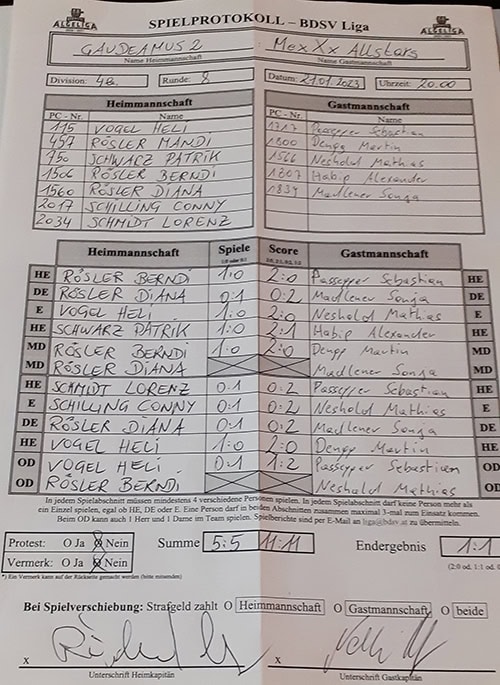 ALGELIGA SPIELPROTOKOLL – BDSV Liga ALGELIGA
GAUDEAMUS 2 : MexXx Allstars
Name Heimmannschaft Name Gastmannschaft
Division: 4B. Runde: 8 Datum: 21.01.2023 Uhrzeit: 20.00
Heimmannschaft Gastmannschaft
PC - Nr. Name PC - Nr. Name
115 VOGEL HELI 1717 Passepper Sebastian
457 RÖSLER MANDI 1800 Dengg Martin
750 SCHWARZ PATRIK 1566 Neshold Mathias
1506 RÖSLER BERNDI 1807 Habip Alexander
1560 RÖSLER DIANA 1834 Madlener Sonja
2017 SCHILLING CONNY
2034 SCHMIDT LORENZ
Heimmannschaft Spiele Score Gastmannschaft
HE RÖSLER BERNDI 1:0 2:0 Passepper Sebastian HE
DE RÖSLER DIANA 0:1 0:2 Madlener Sonja DE
E VOGEL HELI 1:0 2:0 Neshold Mathias E
HE SCHWARZ PATRIK 1:0 2:1 Habip Alexander HE
MD RÖSLER BERNDI 1:0 2:0 Dengg Martin MD
MD RÖSLER DIANA Madlener Sonja MD
HE SCHMIDT LORENZ 0:1 0:2 Passepper Sebastian HE
E SCHILLING CONNY 0:1 0:2 Neshold Mathias E
DE RÖSLER DIANA 0:1 0:2 Madlener Sonja DE
HE VOGEL HELI 1:0 2:0 Dengg Martin HE
OD VOGEL HELI 0:1 1:2 Passepper Sebastian OD
OD RÖSLER BERNDI Neshold Mathias OD
In jedem Spielabschnitt müssen mindestens 4 verschiedene Personen spielen. In jedem Spielabschnitt darf keine Person mehr als
ein Einzel spielen, egal ob HE, DE oder E. Eine Person darf in beiden Abschnitten zusammen maximal 3-mal zum Einsatz kommen.
Beim OD kann auch 1 Herr und 1 Dame im Team spielen. Spielberichte sind per E-Mail an liga@bdsv.at zu übermitteln.
Protest: O Ja O Nein Summe 5:5 11:11 Endergebnis 1:1
Vermerk: O Ja O Nein
*) Ein Vermerk kann auf der Rückseite gemacht werden (bitte mitsenden)
Bei Spielverschiebung: Strafgeld zahlt O Heimmannschaft O Gastmannschaft O beide
x x
Unterschrift Heimkapitän Unterschrift Gastkapitän